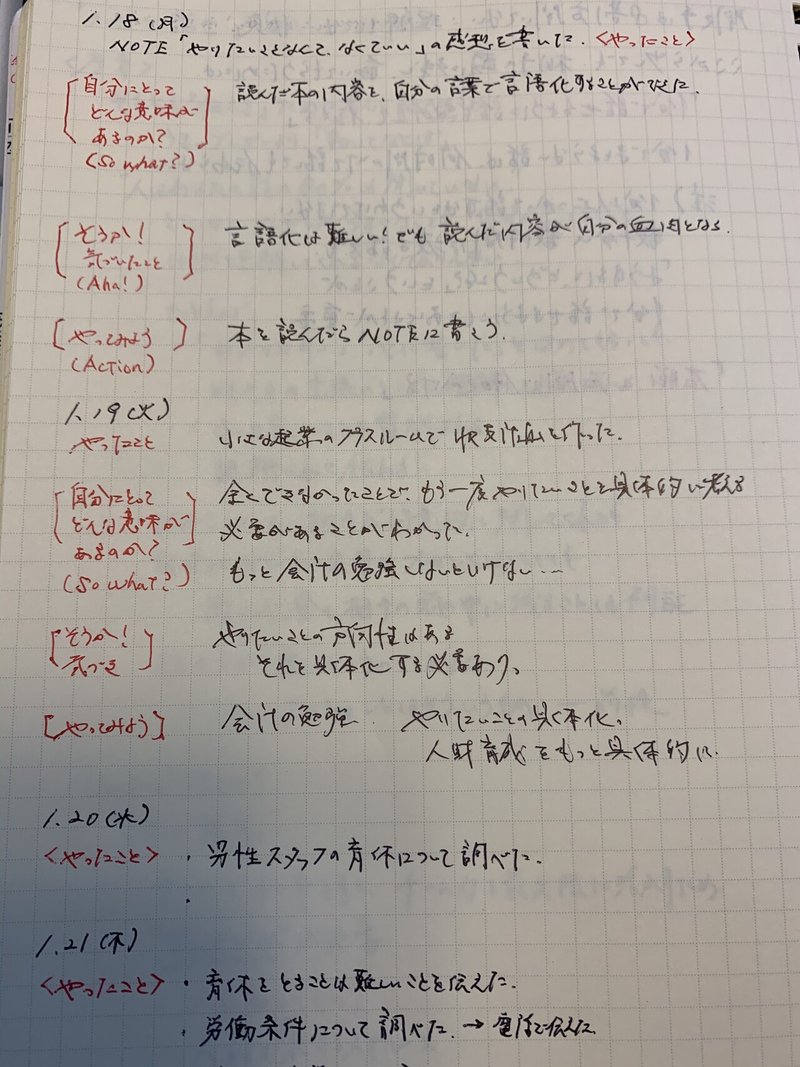 1.18(月)
NOTE「やりたいことなくて、なくていい」の感想を書いた. <やったこと>
自分にとって 読んだ本の内容を、自分の言葉で言語化することができた.
どんな意味が
あるのか?
(So what?)
そうか! 言語化は難しい! でも 読んだ内容が自分の血肉となる.
気づいたこと
(Aha!)
[やってみよう] 本を読んだらNOTEに書こう.
(Action)
1.19(火)
やったこと 小さな起業のプラスルームで収支計画を作った.
自分にとって 全くできなかったことで、もう一度やりたいことを具体的に考える
どんな意味が 必要があることがわかった.
あるのか?
(So what?) もっと会計の勉強しないといけない…
[そうか! やりたいことの方向性はある
気づき] それを具体化する必要あり。
[やってみよう] 会計の勉強 やりたいことの具体化。
人財育成をもっと具体的に.
1.20(水)
<やったこと> ・男性スタッフの育休について調べた.
・
1.21(木)
<やったこと> ・育休をとることは難しいことを伝えた.
・労働条件について調べた. → 電話で伝えた